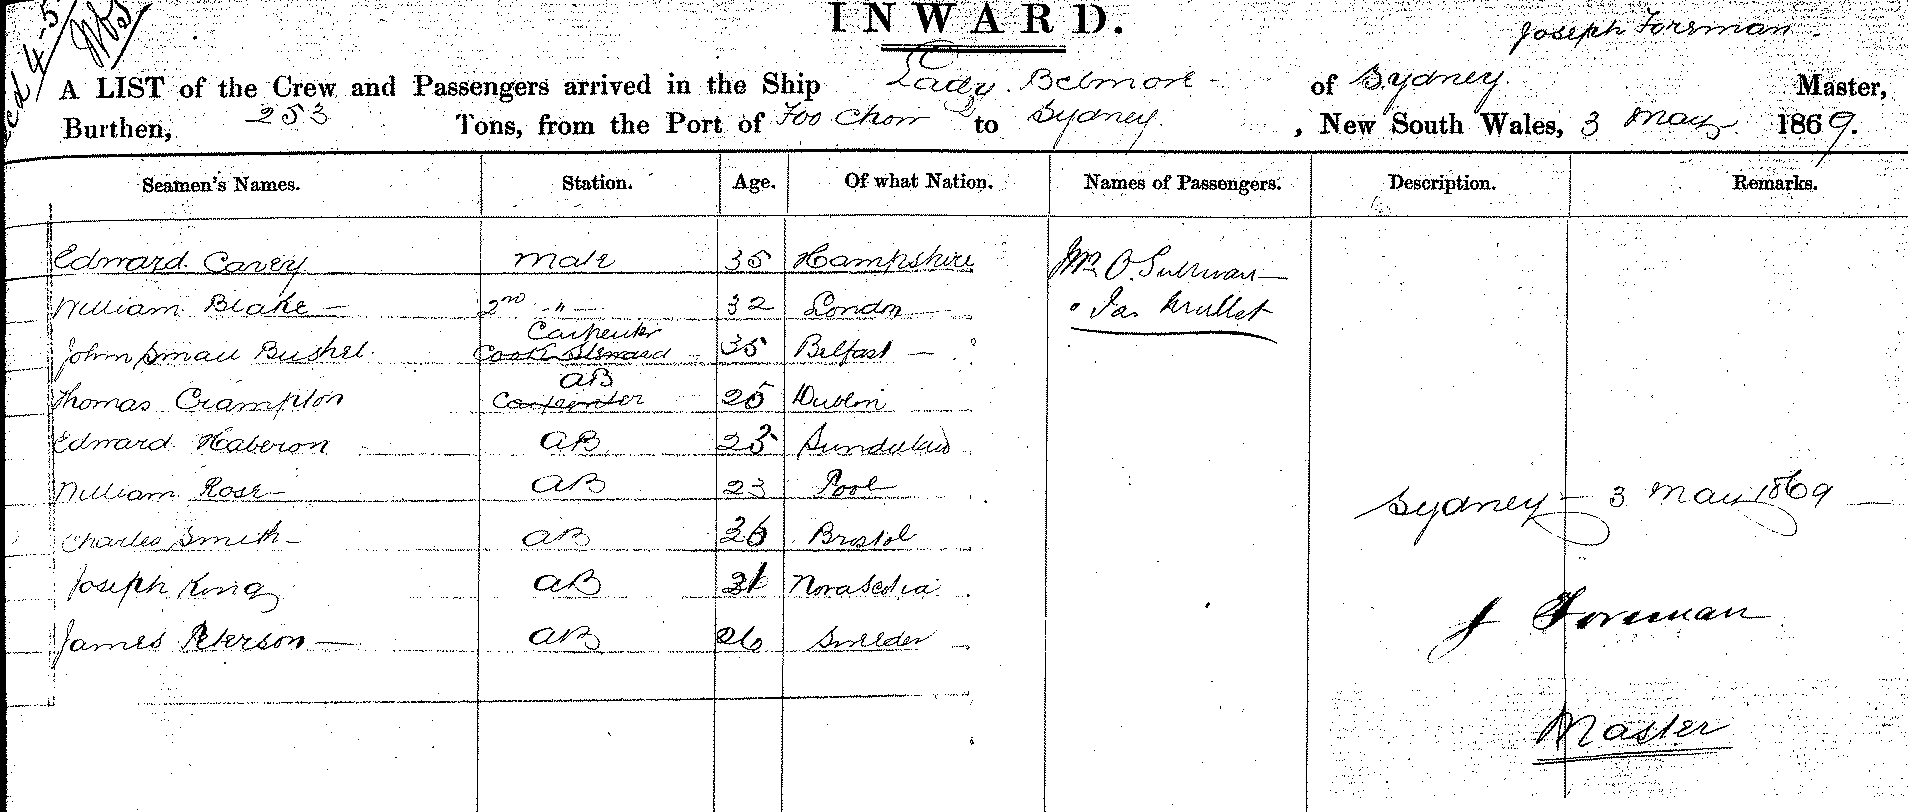 Recd 4-5
INWARD.
Joseph Foreman.
A LIST of the Crew and Passengers arrived in the Ship Lady Belmore of Sydney Master,
Burthen, 253 Tons, from the Port of Foo Chow to Sydney , New South Wales, 3 May 1869.
Seamen's Names. Station. Age. Of what Nation. Names of Passengers. Description. Remarks.
Edward Carey mate 35 Hampshire Mr O.Sullivan
William Blake 2nd " 32 London " Jas Mullet
Carpenter
John Small Bushel Cook & Steward 35 Belfast
AB
Thomas Crampton Carpenter 25 Dublin
Edward Haberon AB 25 Sunderland
William Rose AB 23 Pool
Sydney 3 May 1869
Charles Smith AB 26 Bristol
Joseph King AB 31 Nova Scotia
J Foreman
James Peterson AB 26
Master